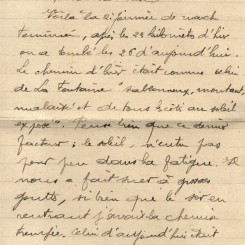 Voilà la 2e journée de march
terminée, après les 28 kilomètres d'hier
on a tombé les 26 d'aujourd'hui.
Le chemin d'hier était comme celui
de La Fontaine "sablonneux, montant,
malaisé et de tous côtés au soleil
exposé". bien que ce dernier
facteur, le soleil, n'entre pas
pour peu dans la fatigue. Il
nous a fait suer à grosses
goutte, si bien que le soir en
rentrant j'avais la chemise
trempée. Celui d'aujourd'hui était